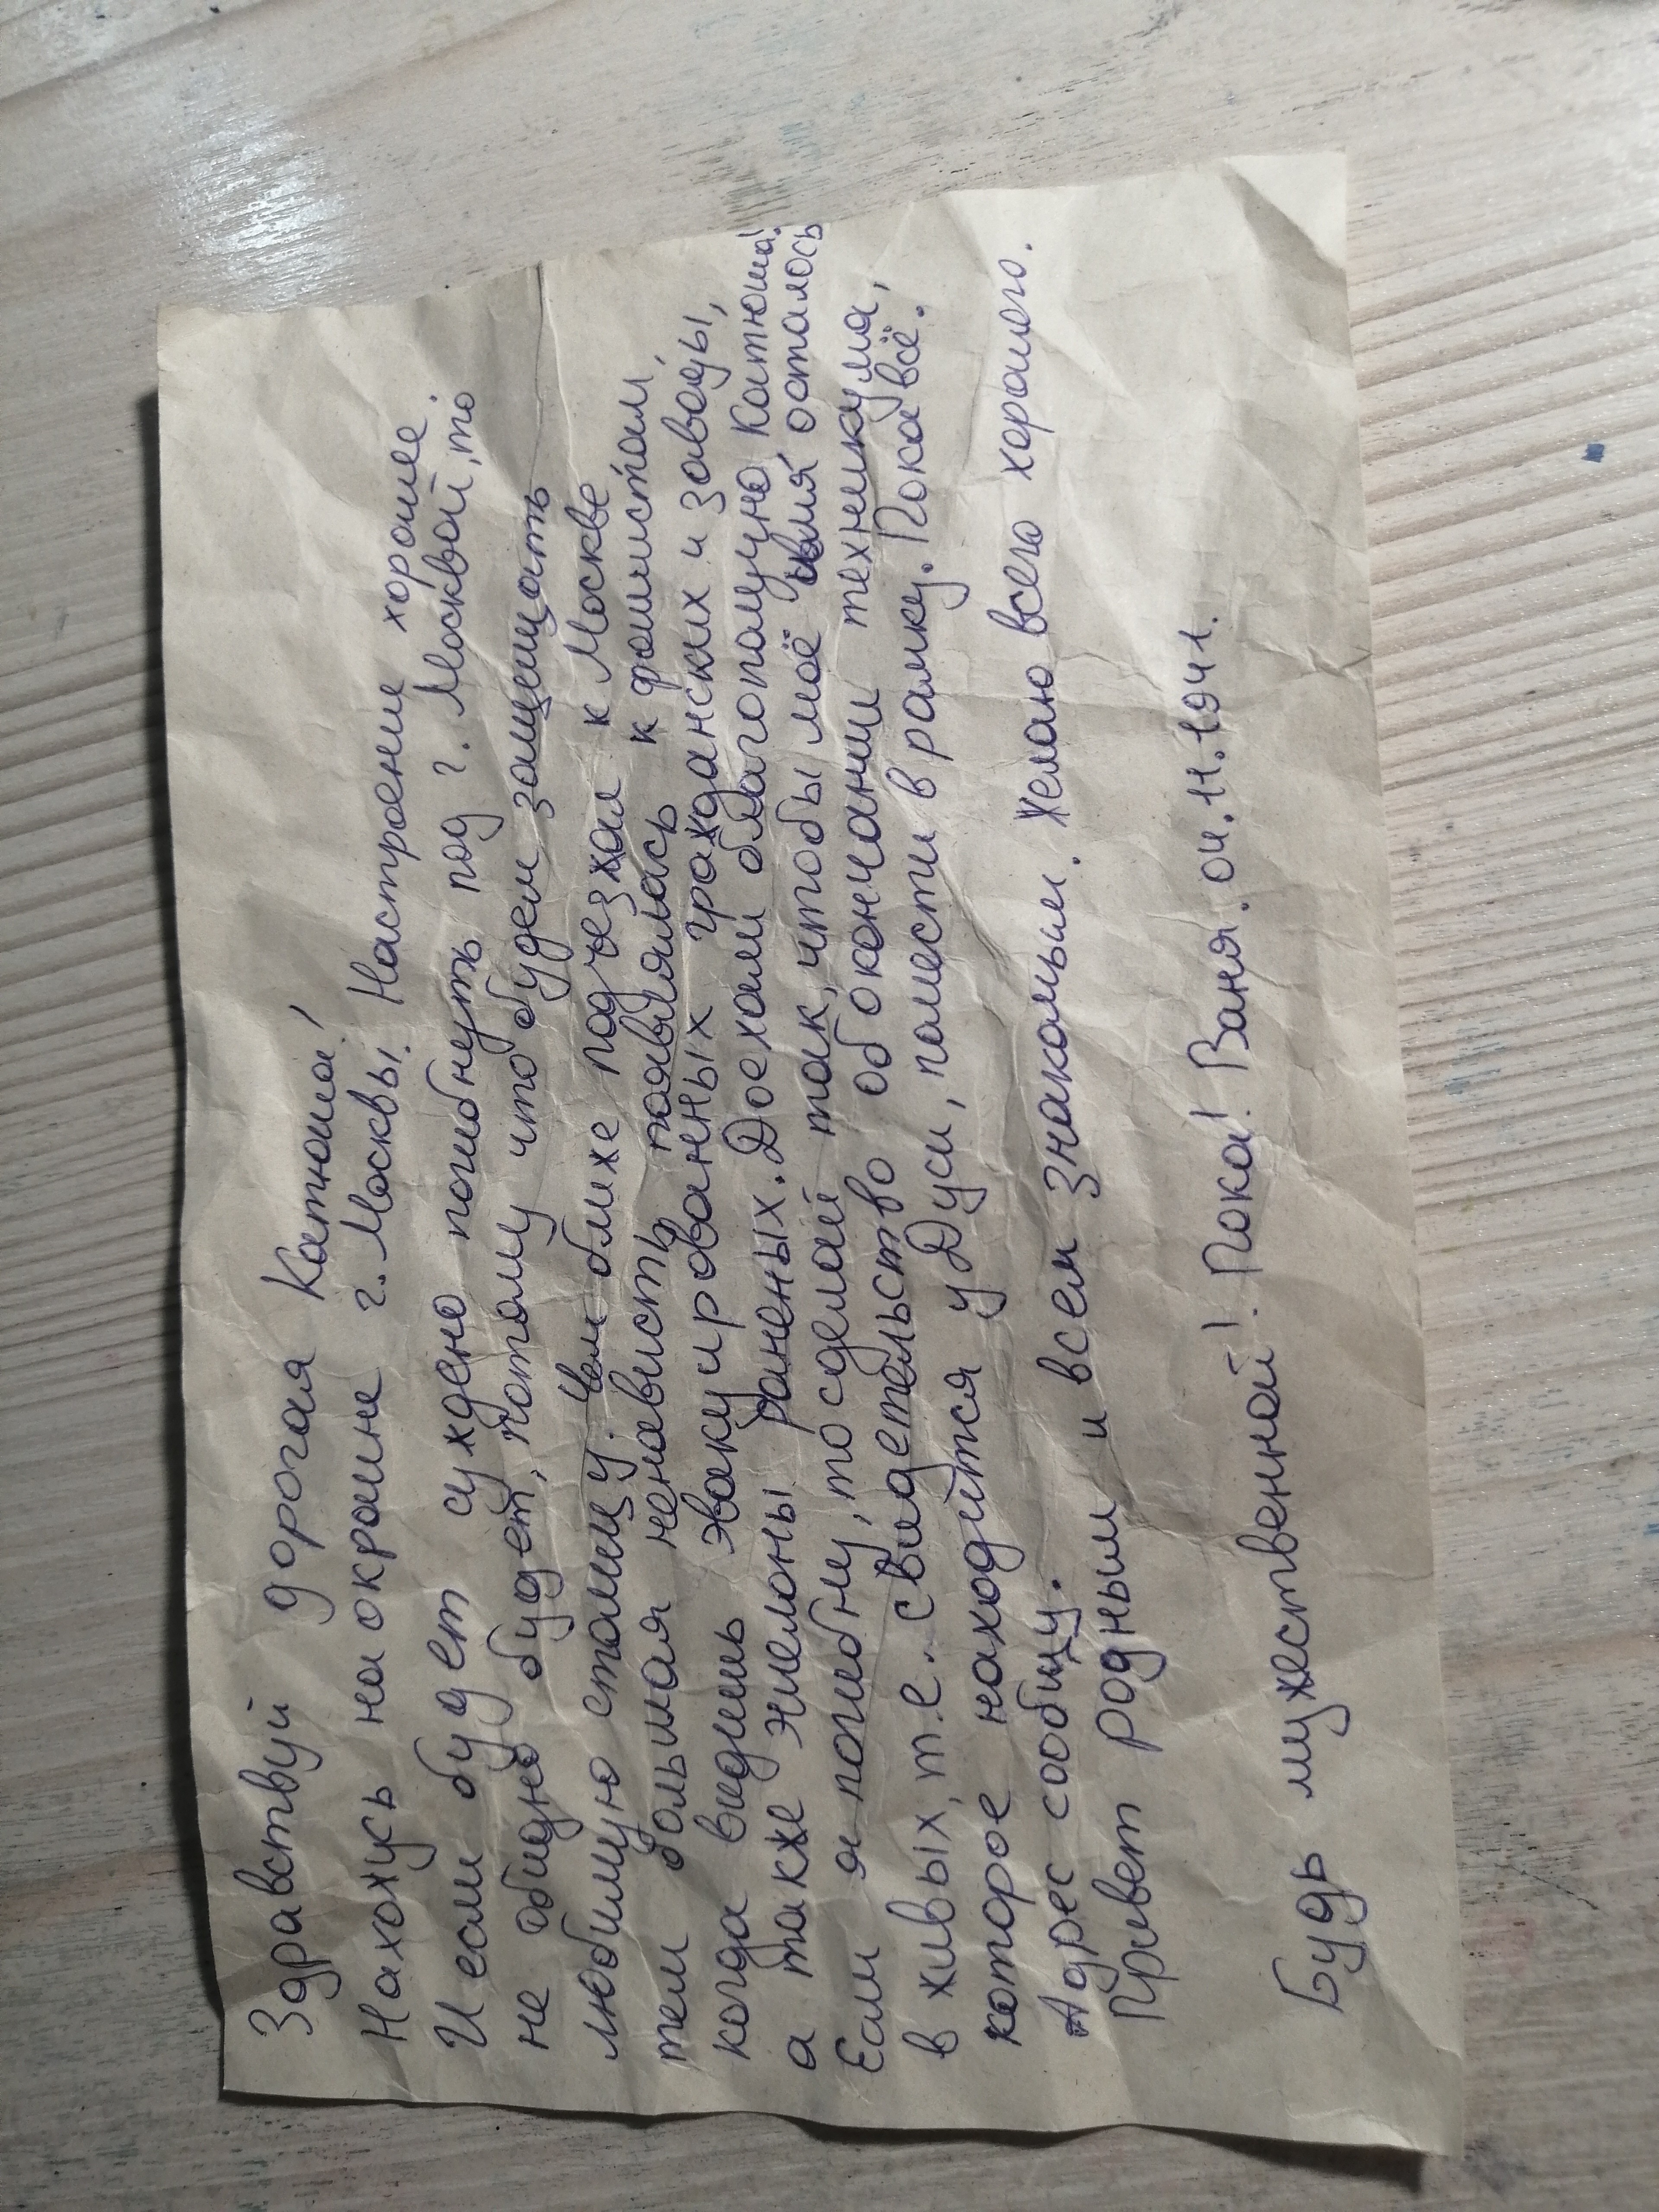 Здравствуй дорогая Катюша!
Нахожусь на окраине г. Москвы. Настроение хорошее.
И если будет суждено погибнуть под г. Москвой, то
не обидно будет, потому что будем защищать
любимую столицу. Чем ближе подъезжал к Москве
тем большая ненависть появлялась к фашистам,
когда видишь эвакуированных гражданских и заводы,
а также эшелоны раненых. Доехали благополучно, Катюша!
Если я погибну, то сделай так, чтобы моё имя осталось
в живых, т.е. свидетельство об окончании техникума,
которое находится у Дуси, помести в рамку. Пока всё.
Адрес сообщу.
Привет родным и всем знакомым. Желаю всего хорошего.
Будь мужественной! Пока! Ваня. 04.11.1941.